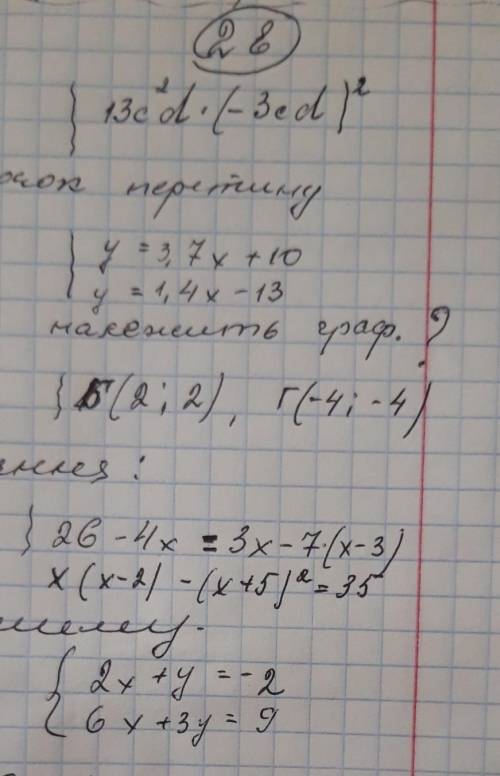 2 в
13c²d · (-3cd)²
перетину
y = 3,7x + 10
y = 1,4x - 13
належить граф. ?
Б(2; 2), Г(-4; -4)
26 - 4x = 3x - 7·(x-3)
x(x-2) - (x+5)² = 35
2x + y = -2
6x + 3y = 9